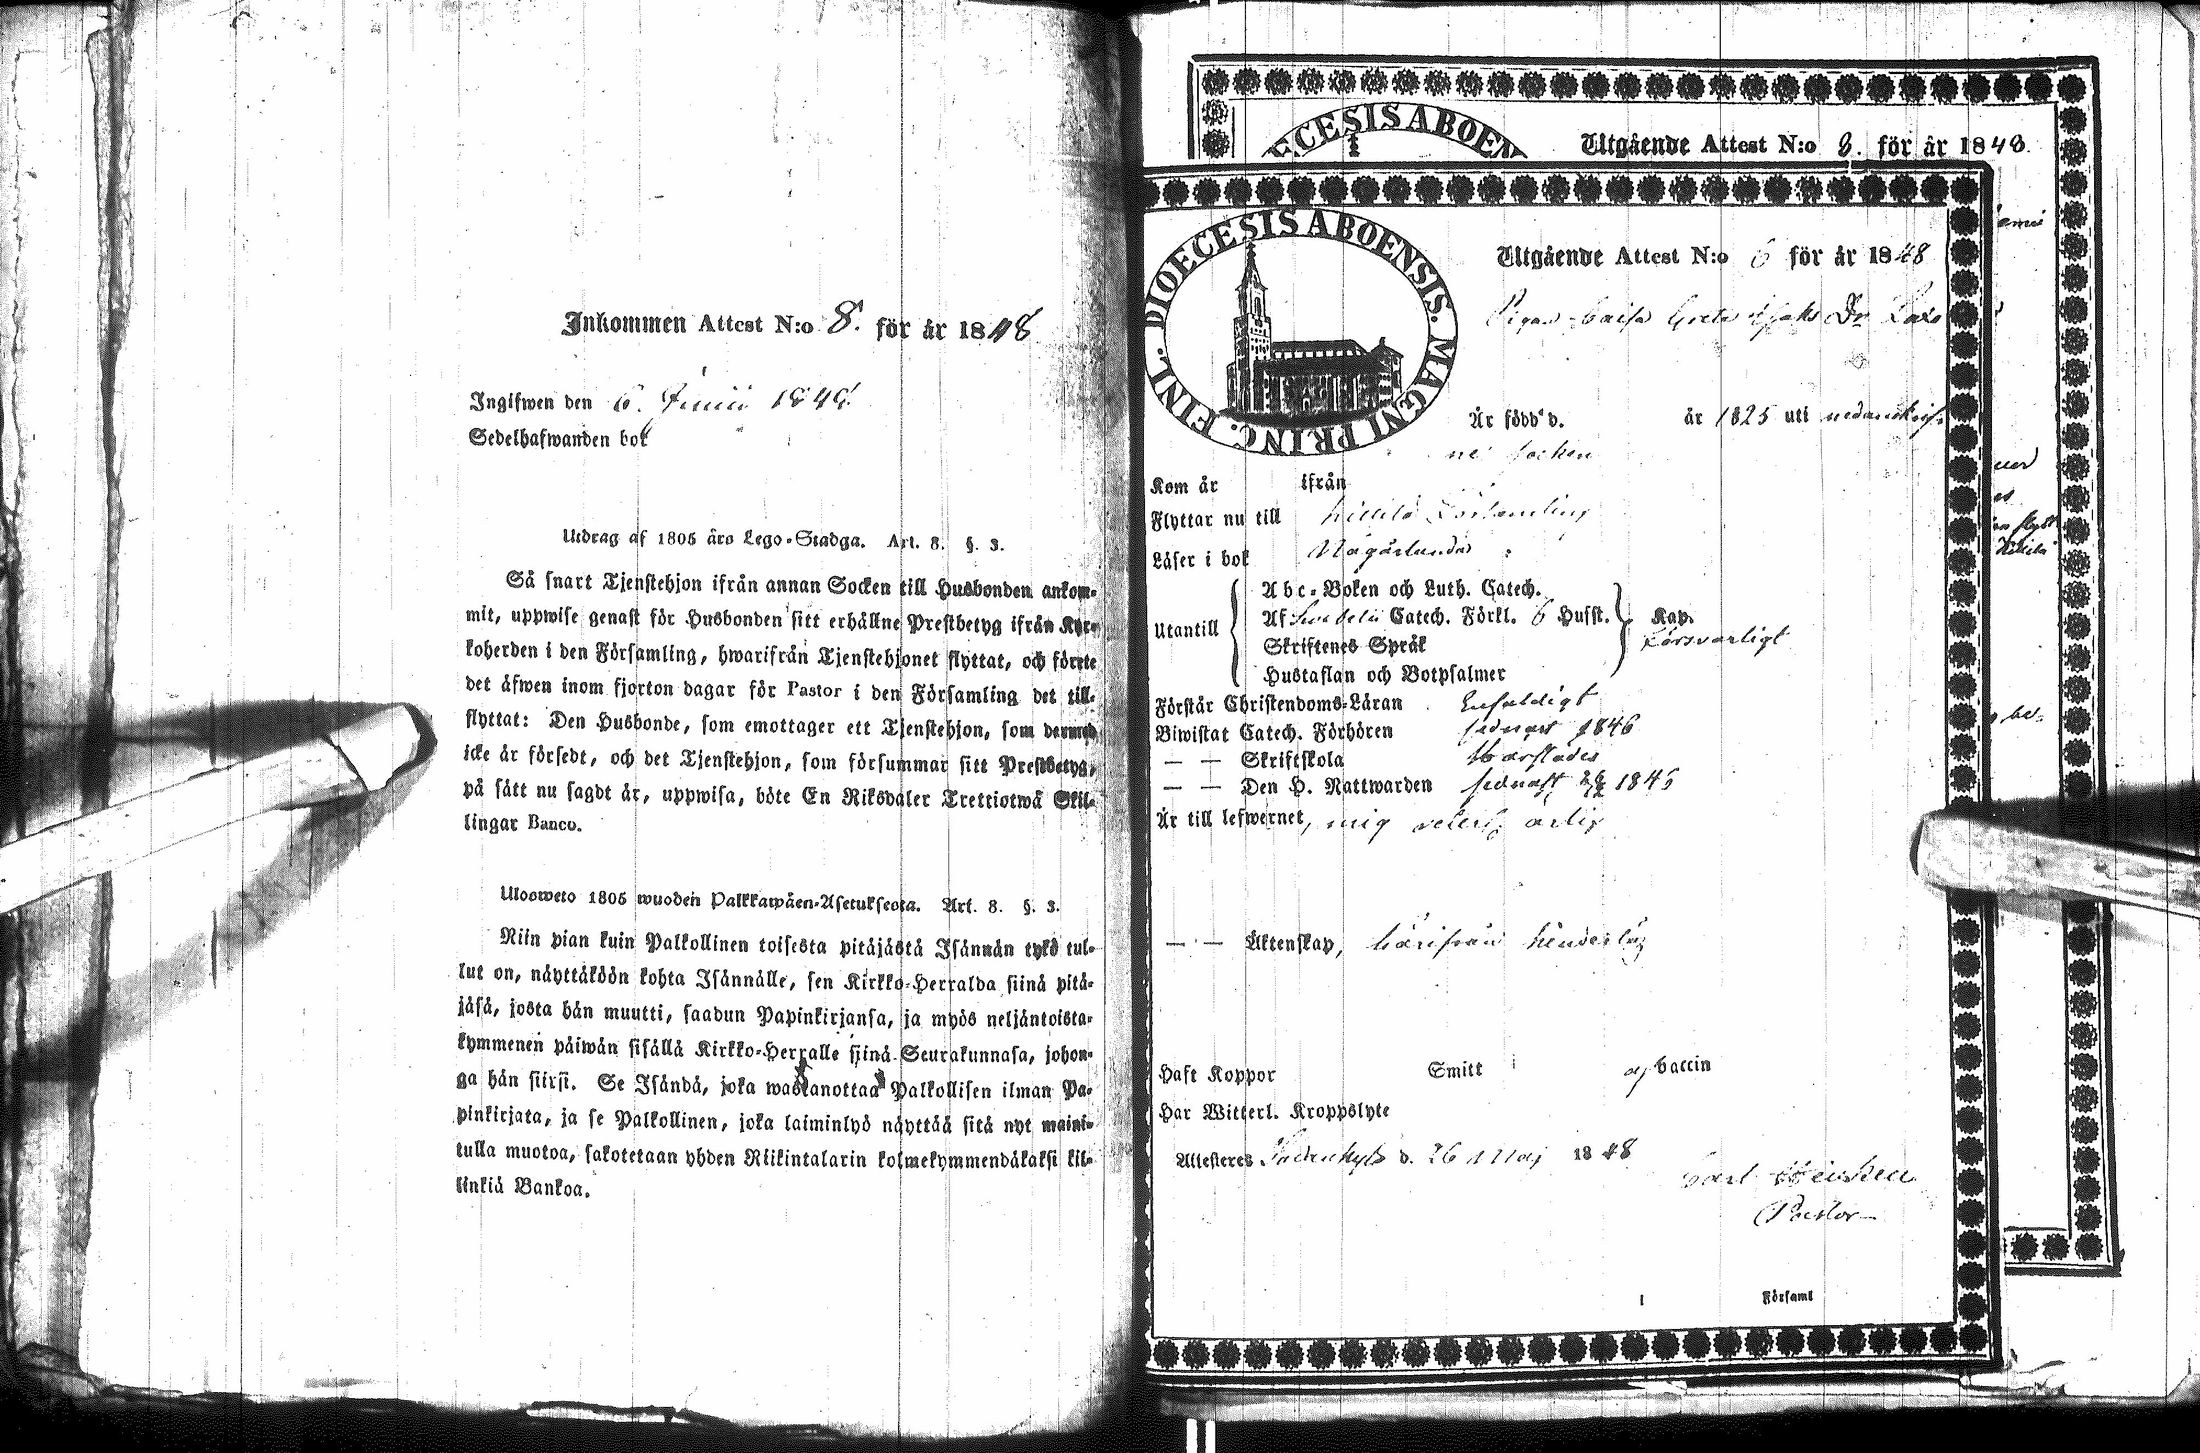 Inkommen Attest N:o 8. för år 1848
Ingifwen den 6. Junii 1848.
Sedelhafwanden bor
Utdrag af 1805 års Lego-Stadga. Art. 8. §. 3.
Så snart Tjenstehjon ifrån annan Socken till Husbonden ankom-
mit, uppwise genast för Husbonden sitt erhållne Prestbetyg ifrån Kyr-
koherden i den Församling, hwarifrån Tjenstehjonet flyttat, och förete
det äfwen inom fjorton dagar för Pastor i den Församling det till-
flyttat: Den Husbonde, som emottager ett Tjenstehjon, som dermed
icke är försedt, och det Tjenstehjon, som försummar sitt Prestbetyg,
på sätt nu sagdt är, uppwisa, böte En Riksdaler Trettiotwå Skil-
lingar Banco.
Ulosweto 1805 wuoden Palkkawäen-Asetuksesta. Art. 8. §. 3.
Niin pian kuin Palkollinen toisesta pitäjästä Isännän tykö tul-
lut on, näyttäköön kohta Isännälle, sen Kirkko-Herralda siinä pitä-
jäsä, josta hän muutti, saadun Papinkirjansa, ja myös neljäntoista-
kymmenen päiwän sisällä Kirkko-Herralle siinä Seurakunnasa, johon-
ga hän siirsi. Se Isändä, joka wastanottaa Palkollisen ilman Pa-
pinkirjata, ja se Palkollinen, joka laiminlyö näyttää sitä nyt maini-
tulla muotoa, sakotetaan yhden Riikintalarin kolmekymmendäkaksi kil-
linkiä Bankoa.
DIOECESIS ABOEN
Utgående Attest N:o 8. för år 1848
DIOECESIS ABOENSIS. MAGNI PRINC. FINL.
Utgående Attest N:o 6 för år 1848
Pigan Caisa Greta
Är född d. år 1825 uti nedanskrif-
ne socken
Kom år ifrån
Flyttar nu till Församling
Läser i bok Någorlunda
Utantill
Abc-Boken och Luth. Catech.
Af Svebelii Catech. Förkl. 6 Hufst. Kap.
Skriftenes Språk Försvarligt
Hustaflan och Botpsalmer
Förstår Christendoms-Läran Enfaldigt
Biwistat Catech. Förhören sednast 1846
— — Skriftskola
— — Den H. Nattwarden sednast 1846
Är till lefwernet, mig veterl. ärlig
— — Äktenskap, härifrån hinderlös
Haft Koppor Smitt af vaccin
Har Witterl. Kroppslyte
Attesteres d. 26 Maj 1848
Carl
Pastor
i Församl